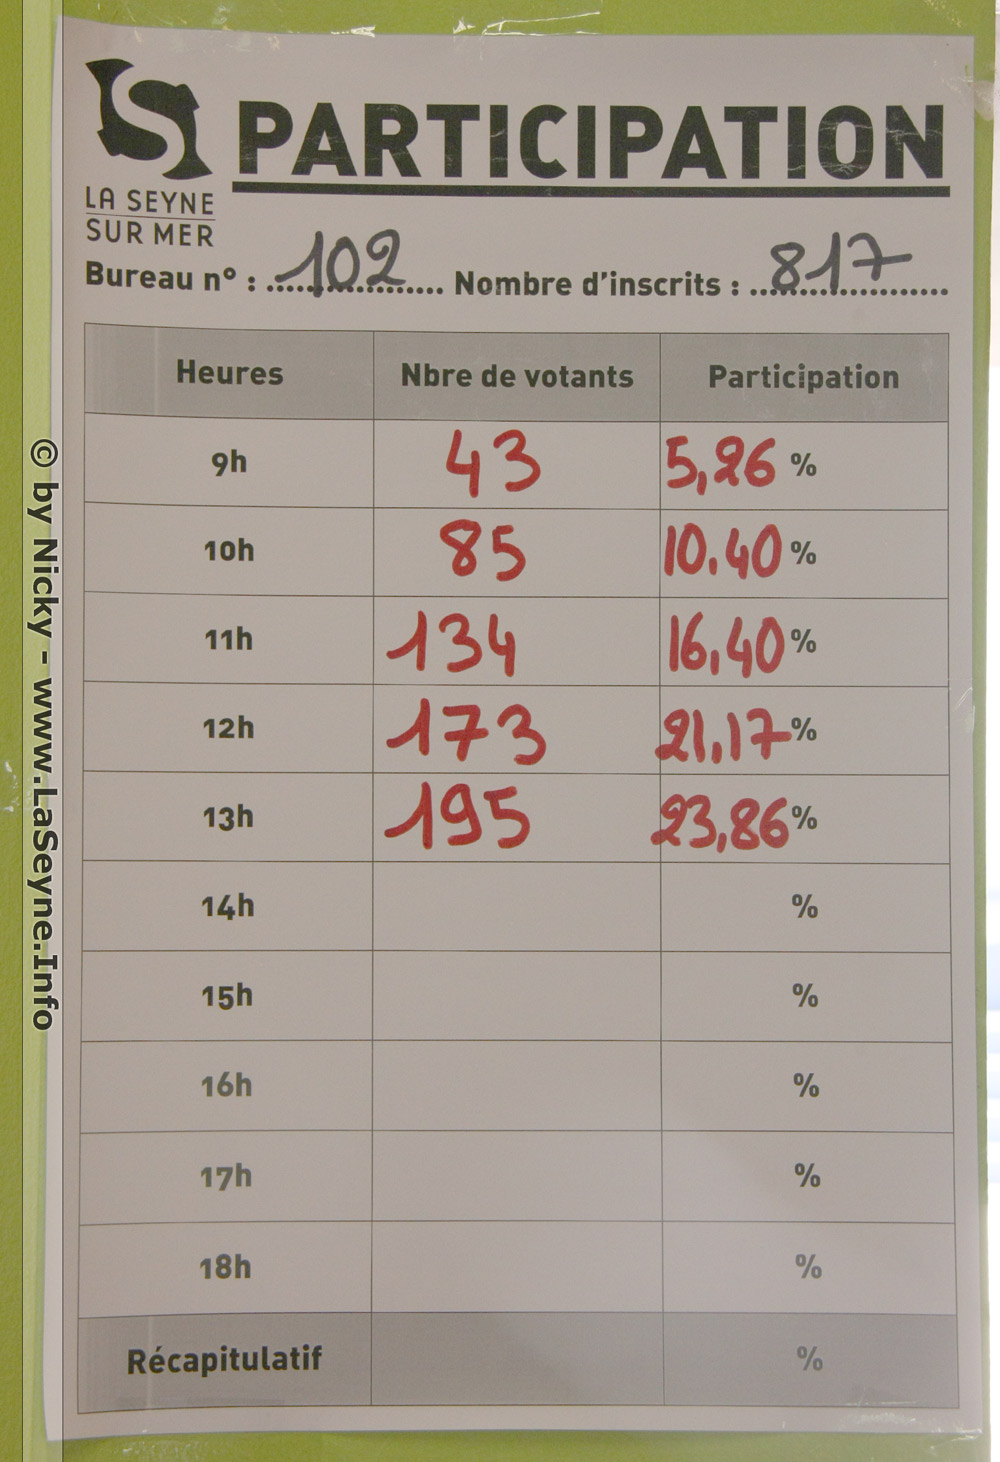 PARTICIPATION
LA SEYNE
SUR MER
Bureau n° : 102 Nombre d'inscrits : 817
Heures Nbre de votants Participation
9h 43 5,26 %
10h 85 10,40 %
11h 134 16,40 %
12h 173 21,17 %
13h 195 23,86 %
14h %
15h %
16h %
17h %
18h %
Récapitulatif %
© by Nicky - www.LaSeyne.Info